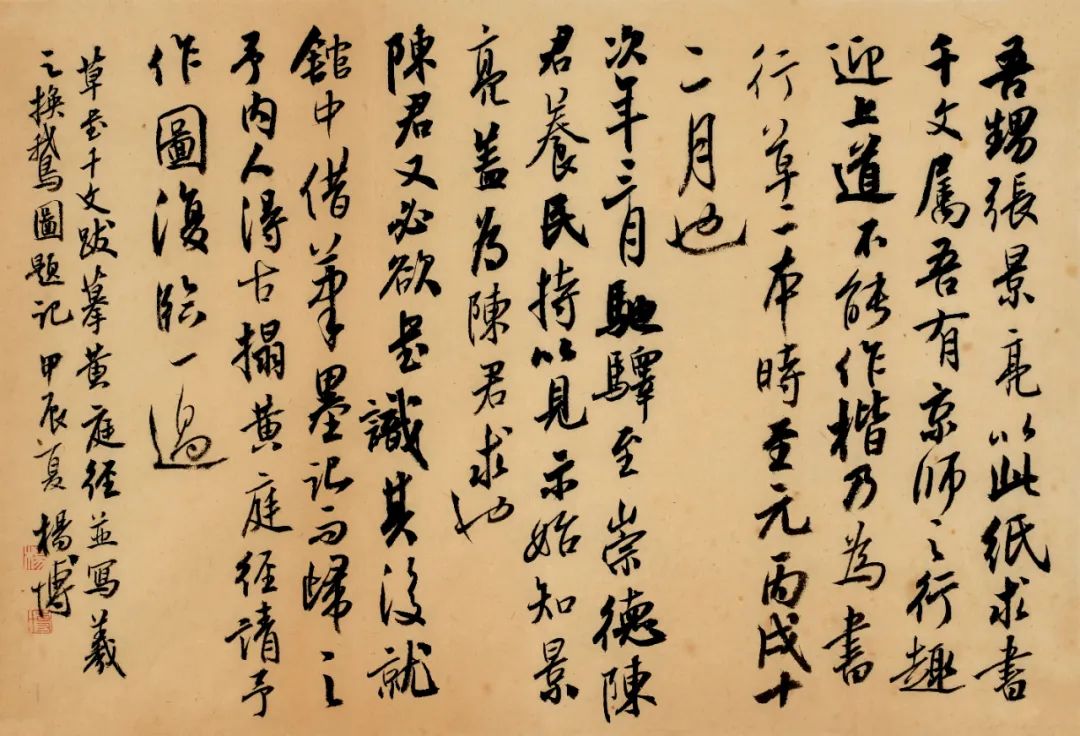 吾甥張景亮以此紙求書
千文属吾有京師之行趣
迎上道不能作楷乃為書
行草二本時至元丙戌十
二月也
次年二月馳驛至崇德陳
君養民持以見示始知景
亮蓋為陳君求也
陳君又必欲書識其後就
館中借筆墨記而歸之
予内人得古搨黄庭経請予
作圖復臨一過
草書千文跋摹黄庭径並寫羲
之換鵞圖題記 甲辰夏 楊博